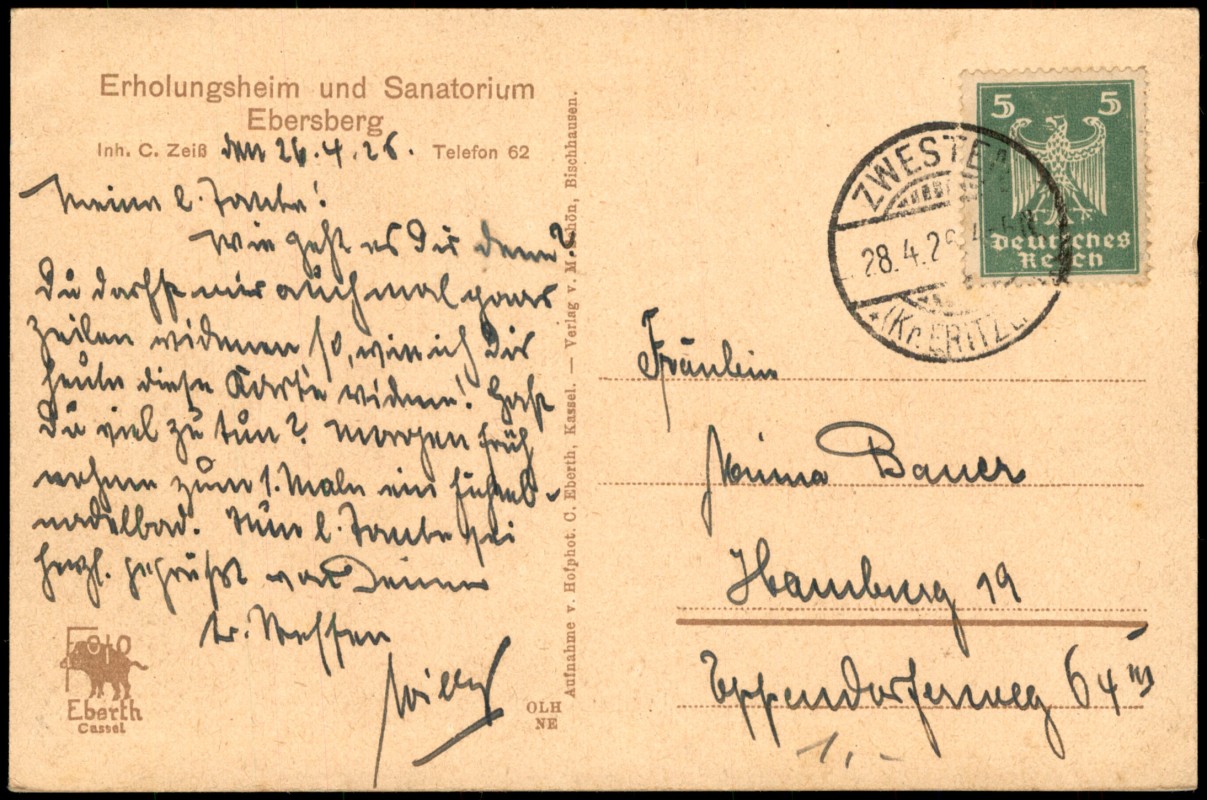 Erholungsheim und Sanatorium
Ebersberg
Inh. C. Zeiß den 26.4.26. Telefon 62
Meine l. Tante!
Wie geht es Dir denn?
Du darfst mir auch mal paar
Zeilen widmen so, wie ich Dir
heute diese Karte widme! Hast
Du viel zu tun? Morgen früh
nehme zum 1. Male ein Fichten-
nadelbad. Nun l. Tante sei
herzl. gegrüßt von Deinem
tr. Neffen
Willy
Foto
Eberth
Cassel
OLH
NE
Aufnahme v. Hofphot. C. Eberth, Kassel. — Verlag v. M. Schön, Bischhausen.
5 5
Deutsches
Reich
ZWESTEN
28.4.26
(Kr. FRITZL
Fräulein
Minna Bauer
Hamburg 19
Eppendorferweg 64 III
1,-